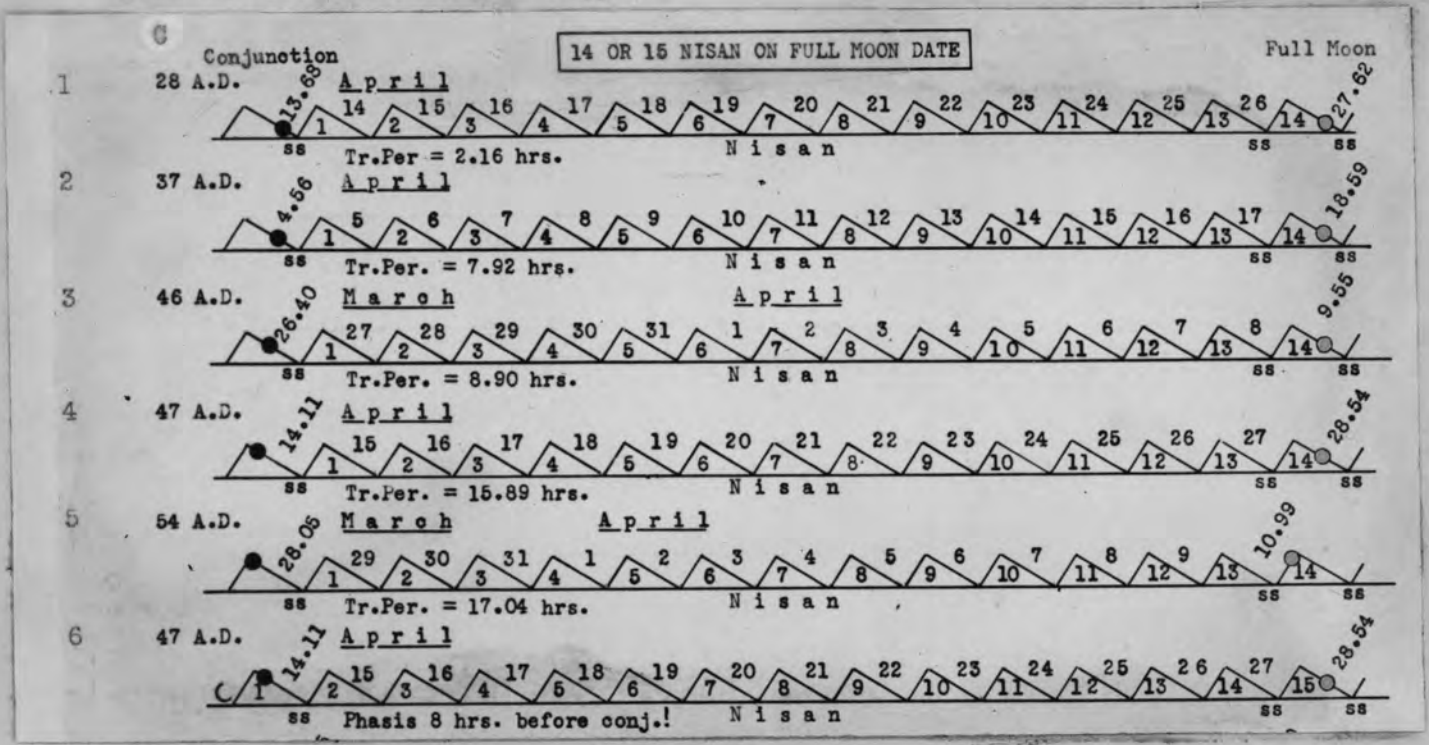 C
Conjunction
14 OR 15 NISAN ON FULL MOON DATE
Full Moon
1 28 A.D. 13.68 April 27.62
14 15 16 17 18 19 20 21 22 23 24 25 26
1 2 3 4 5 6 7 8 9 10 11 12 13 14
ss Tr.Per = 2.16 hrs. Nisan ss ss
2 37 A.D. 4.56 April 18.59
5 6 7 8 9 10 11 12 13 14 15 16 17
1 2 3 4 5 6 7 8 9 10 11 12 13 14
ss Tr.Per. = 7.92 hrs. Nisan ss ss
3 46 A.D. 26.40 March April 9.55
27 28 29 30 31 1 2 3 4 5 6 7 8
1 2 3 4 5 6 7 8 9 10 11 12 13 14
ss Tr.Per. = 8.90 hrs. Nisan ss ss
4 47 A.D. 14.11 April 28.54
15 16 17 18 19 20 21 22 23 24 25 26 27
1 2 3 4 5 6 7 8 9 10 11 12 13 14
ss Tr.Per. = 15.89 hrs. Nisan ss ss
5 54 A.D. 28.05 March April 10.99
29 30 31 1 2 3 4 5 6 7 8 9
1 2 3 4 5 6 7 8 9 10 11 12 13 14
ss Tr.Per. = 17.04 hrs. Nisan ss ss
6 47 A.D. 14.11 April 28.54
15 16 17 18 19 20 21 22 23 24 25 26 27
1 2 3 4 5 6 7 8 9 10 11 12 13 14 15
ss Phasis 8 hrs. before conj.! Nisan ss ss